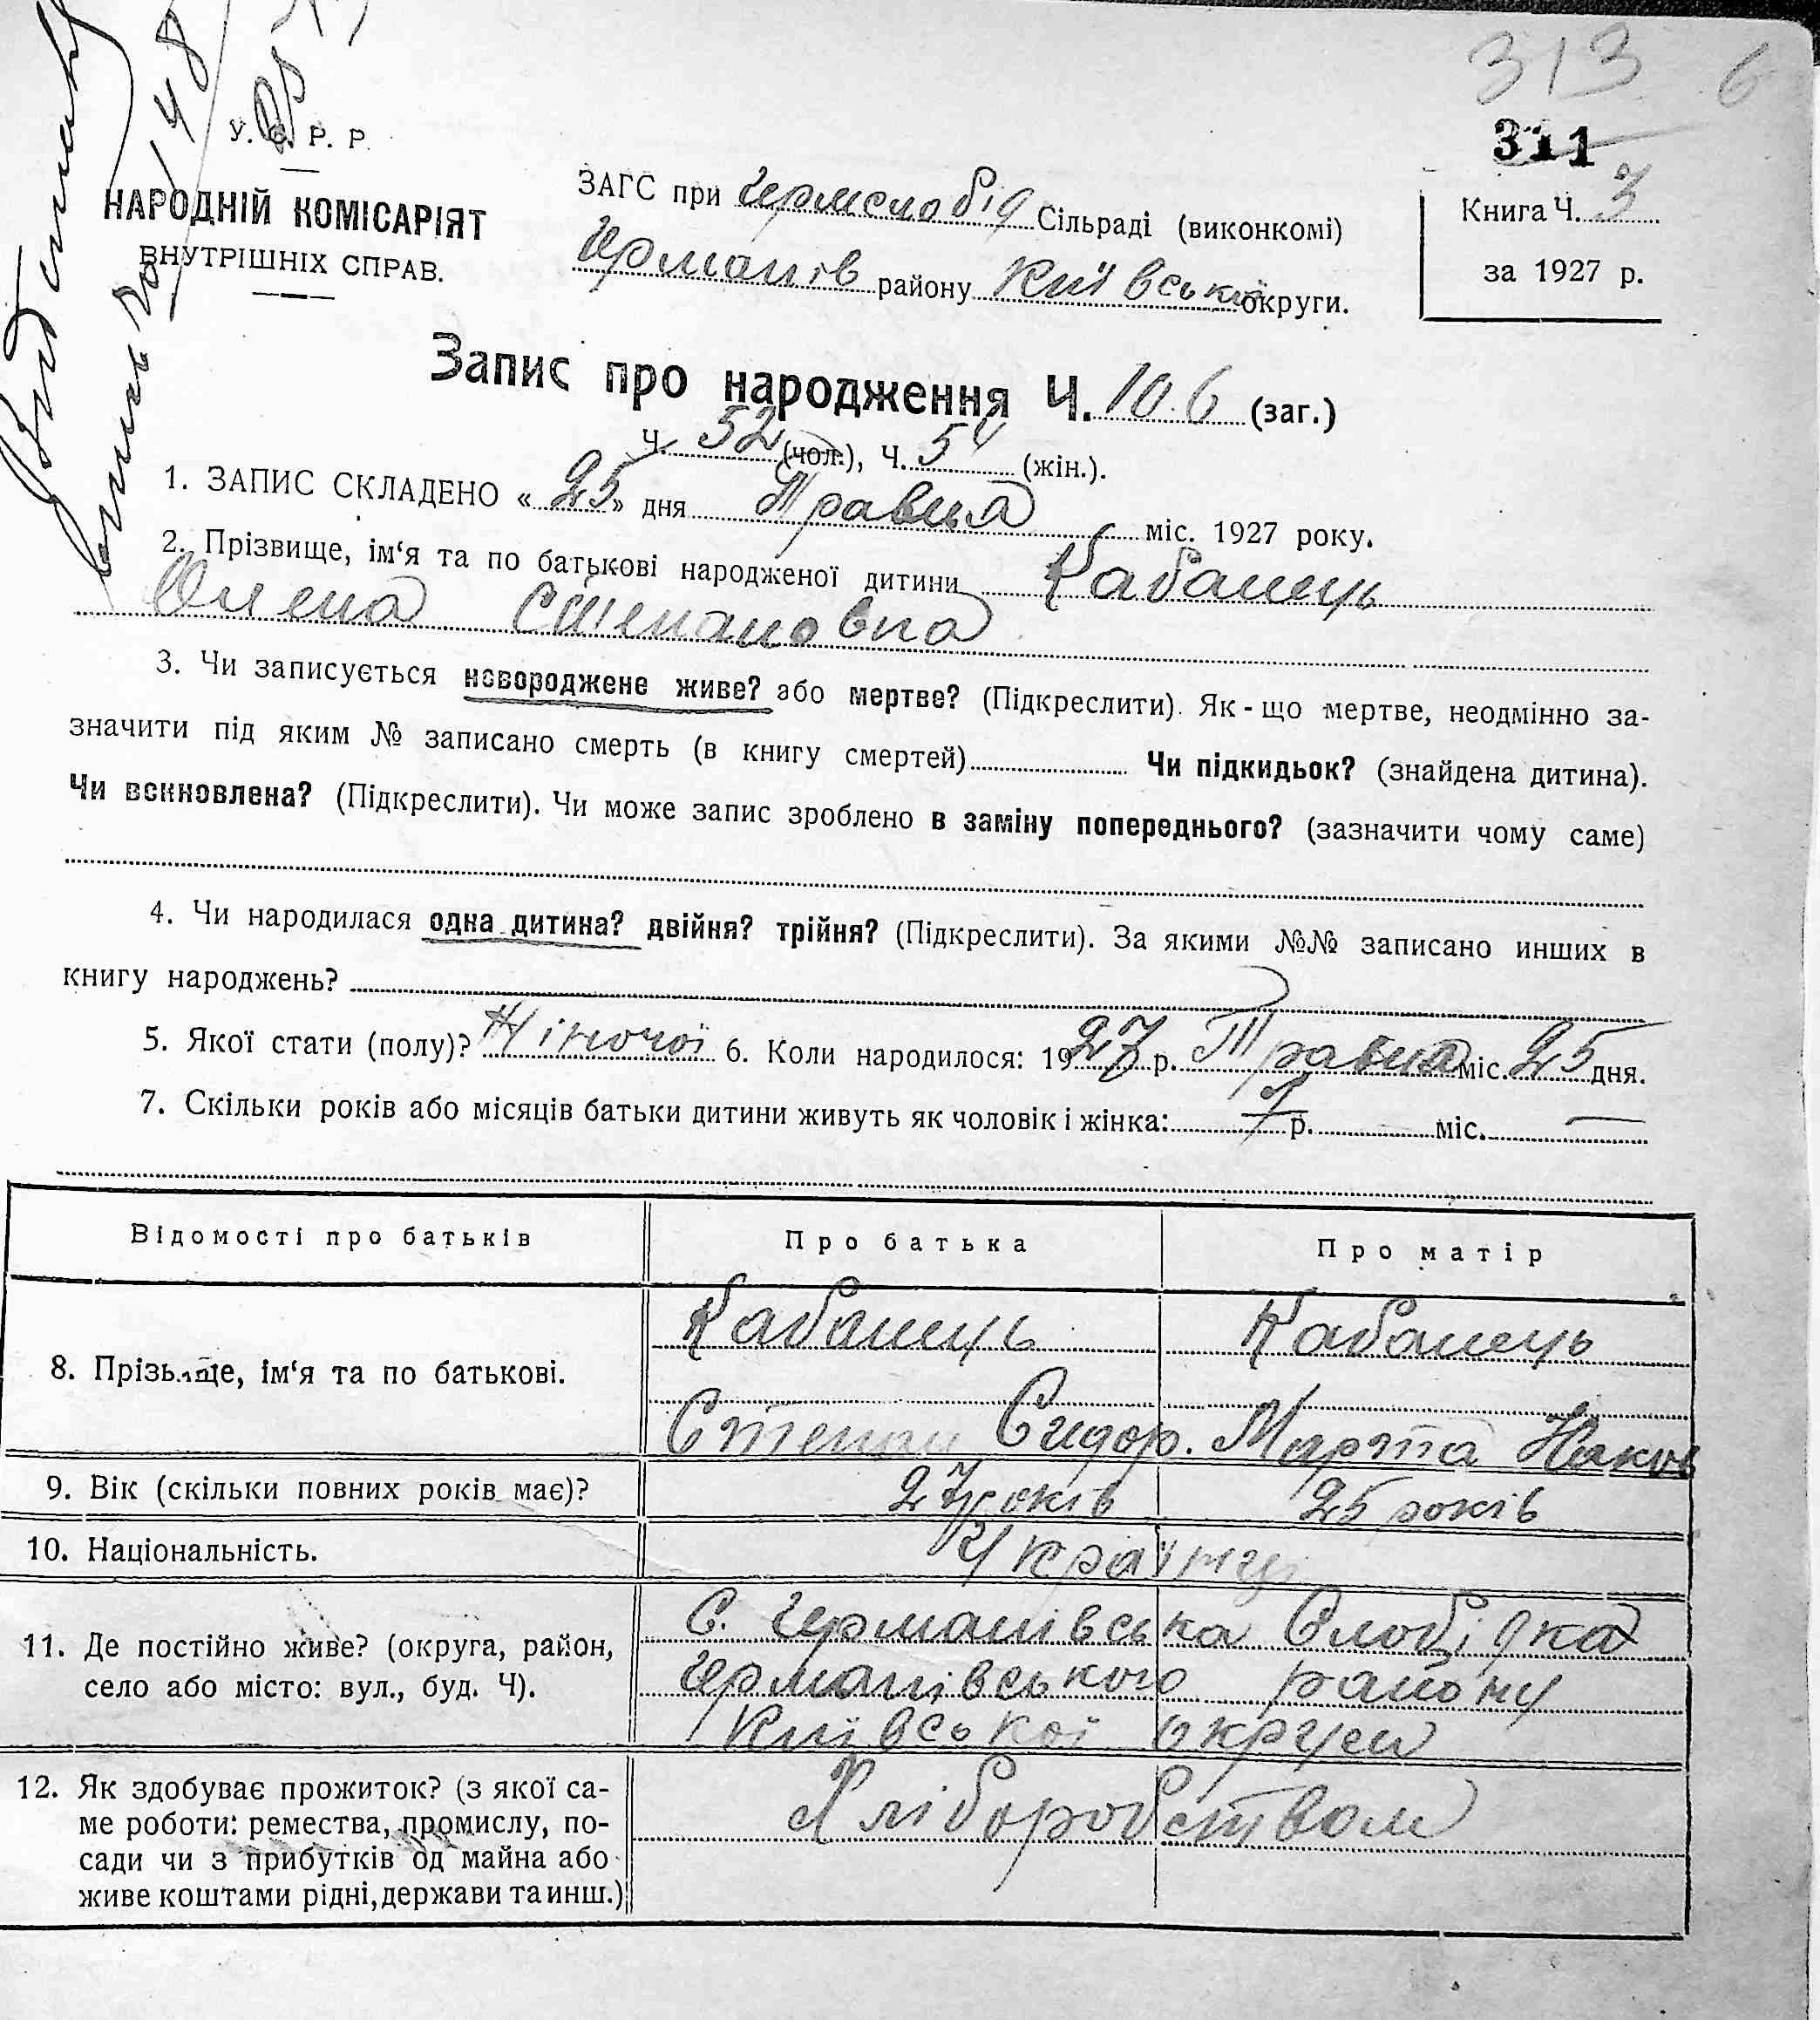 313 6
311
У. С. Р. Р.
НАРОДНІЙ КОМІСАРІЯТ
ВНУТРІШНІХ СПРАВ.
ЗАГС при Гермслобід Сільраді (виконкомі)
Германів району Київської округи.
Книга Ч. 3
за 1927 р.
Запис про народження Ч. 106 (заг.)
Ч. 52 (чол.), Ч. 54 (жін.).
1. ЗАПИС СКЛАДЕНО « 25 » дня Травня міс. 1927 року.
2. Прізвище, ім‘я та по батькові народженої дитини Кабанець
Олена Степановна
3. Чи записується новороджене живе? або мертве? (Підкреслити). Як-що мертве, неодмінно за-
значити під яким № записано смерть (в книгу смертей) Чи підкидьок? (знайдена дитина).
Чи всиновлена? (Підкреслити). Чи може запис зроблено в заміну попереднього? (зазначити чому саме)
4. Чи народилася одна дитина? двійня? трійня? (Підкреслити). За якими №№ записано инших в
книгу народжень?
5. Якої стати (полу)? Жіночої 6. Коли народилося: 1927 р. Травня міс. 25 дня.
7. Скільки років або місяців батьки дитини живуть як чоловік і жінка: 1 р. міс. —
Відомості про батьків Про батька Про матір
8. Прізвище, ім‘я та по батькові. Кабанець Кабанець
Степан Сидор. Марта Яков
9. Вік (скільки повних років має)? 27 років 25 років
10. Національність. Українці
11. Де постійно живе? (округа, район,
село або місто: вул., буд. Ч).
С. Германівська Слобідка
Германівського району
Київської округи
12. Як здобуває прожиток? (з якої са-
ме роботи: ремества, промислу, по-
сади чи з прибутків од майна або
живе коштами рідні, держави та инш.)
Хліборобством